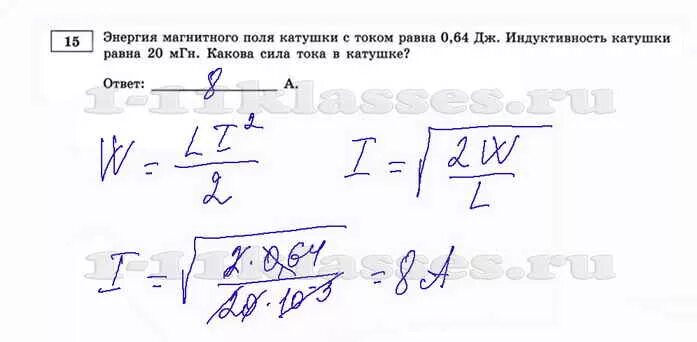 15 Энергия магнитного поля катушки с током равна 0,64 Дж. Индуктивность катушки
равна 20 мГн. Какова сила тока в катушке?
Ответ: 8 А.
1-11klasses.ru
W = LI²/2 I = √(2W/L)
I = √(2·0,64/20·10⁻³) = 8 А
1-11klasses.ru